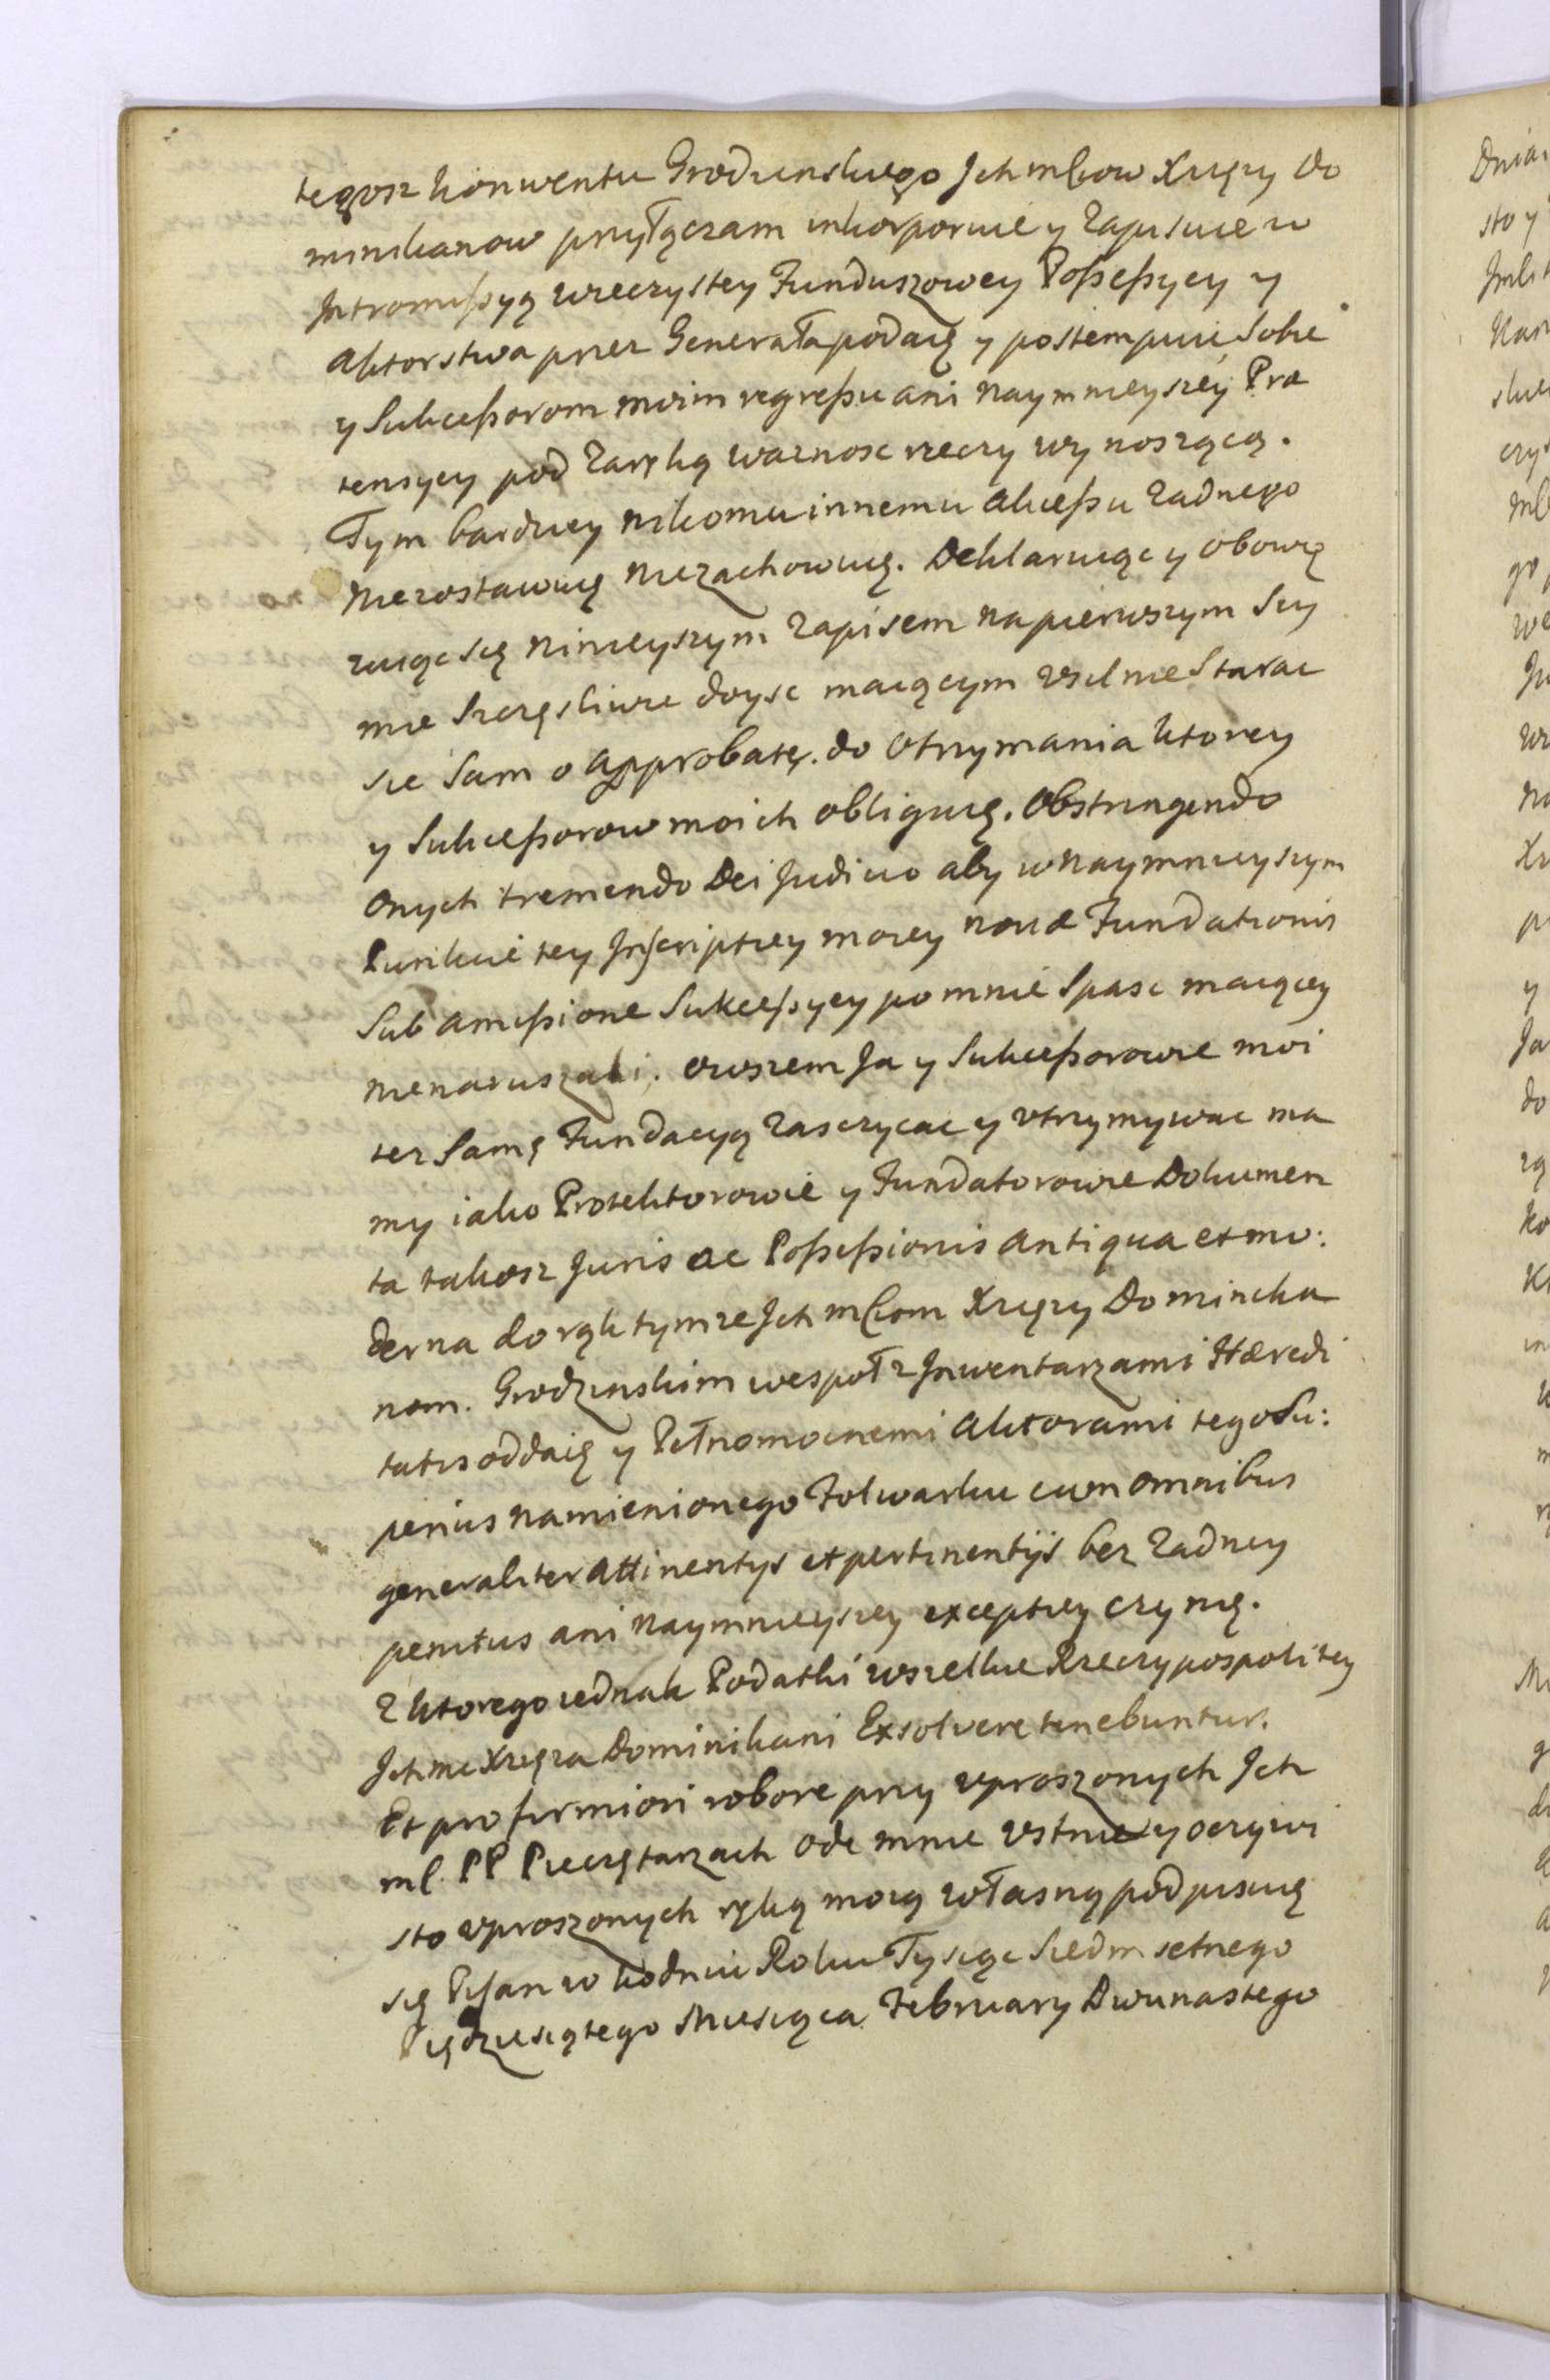 tegosz Konwentu Grodzinskiego Ich mſcow Xięzy Do
minikanow przyłączam inkorporuie y Zapisuie w
Intromiſsyą wieczystey Funduszowey Poſseſsyey y
Aktorstwa przez Generała podaię y postempuie Sobie
y Sukceſsorom moim regreſsu ani Naymnieyszey Præ
tensyey pod Zaręką waznosc rzeczy wynoszącą.
Tym bardziey Nikomu innemu Akceſsu Zadnego
Niezostawuię Niezachowuię. Deklaruiąc y Obowię
zuiąc się Ninieyszym Zapisem Na pierwszym Sey
mie Szczęsliwie doysc maiącym Vsilnie Starac
sie Sam o Approbatę. do Otrzymania Ktorey
y Sukceſsorow moich obliguię. Obstringendo
Onych tremendo Dei Judicio aby w Naymnieyszym
Punkcie tey Inſcriptiey moiey novæ Fundationis
Sub Amiſsione Sukceſsyey po mnie Spasc maiącey
Nienaruszali. Owszem Ja y Sukceſsorowie moi
tez Samę Fundacyą Zasczycac y Vtrzymywac ma
my iako Protektorowie y Fundatorowie Dokumen
ta takosz Juris ac Poſseſsionis Antiqua et mo:
derna do rąk tymze Ich mſciom Xięzy Dominika
nom. Grodzinskim wespoł z Inwentarzami Hæredi
tatis oddaię y Pełnomocnemi Aktorami tego Su:
perius Namienionego Folwarku cum omnibus
generaliter Attinentys et pertinentijs bez Zadney
penitus ani Naymnieyszey exceptiey czynię.
Z Ktorego iednak Podatki wszelkie Rzeczypospolitey
Ich mc Xięza Dominikani Exsolvere tenebuntur.
Et pro firmiori robore przy vproszonych Ich
mſ. PP Pieczętarzach Ode mnie Vstnie y oczywi
sto vproszonych ręką moią własną podpisuię
się Piſan w Kodniu Roku Tysiąc Siedm setnego
Piędziesiątego Miesiąca February Dwunastego